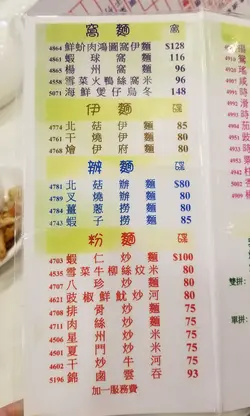 窩麵 窩
4864 鮮蚧肉鴻圖窩伊麵 $128
4861 蝦球窩麵 116
4865 楊州窩麵 96
4558 雪菜火鴨絲窩米 96
5071 海鮮煲仔烏冬 148
伊麵 碟
4774 北菇伊麵 85
4771 干燒伊麵 80
4768 燴伊府麵 80
辦麵 碟
4781 北菇辦麵 $80
4789 叉燒辦麵 80
4784 薑蔥撈麵 80
4743 蝦子撈麵 85
粉麵 碟
4703 蝦仁炒麵 $100
5595 雪菜牛柳絲炆米 80
4757 八珍炒麵 80
4621 豉椒鮮魷炒河 80
4708 排骨炒麵 75
4711 肉絲炒麵 75
4505 星州炒米 75
4501 夏門炒米 75
4602 干炒牛河 75
5196 錦鹵雲吞 93
加一服務費